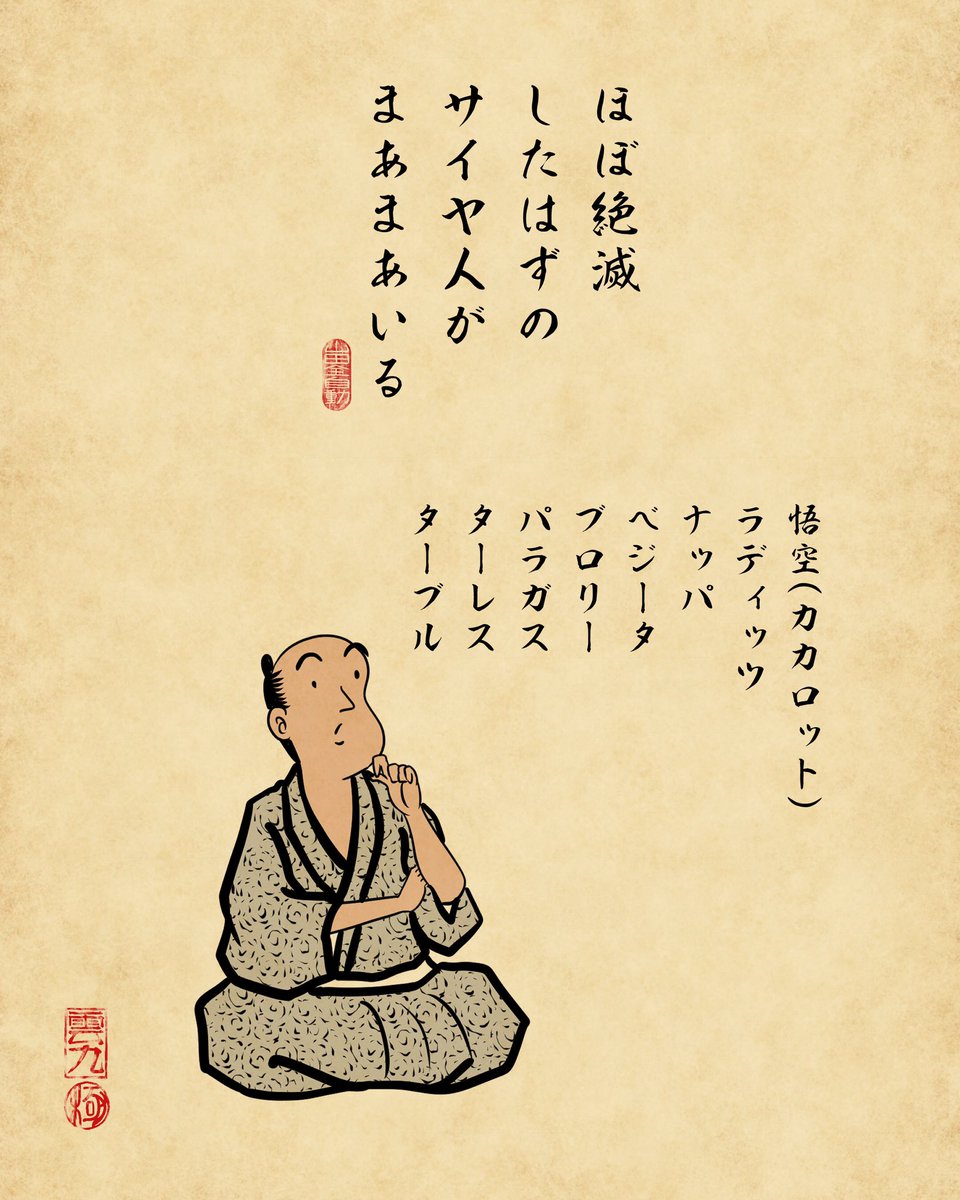 ほぼ絶滅
したはずの
サイヤ人が
まあまあいる
悟空(カカロット)
ラディッツ
ナッパ
ベジータ
ブロリー
パラガス
ターレス
ターブル